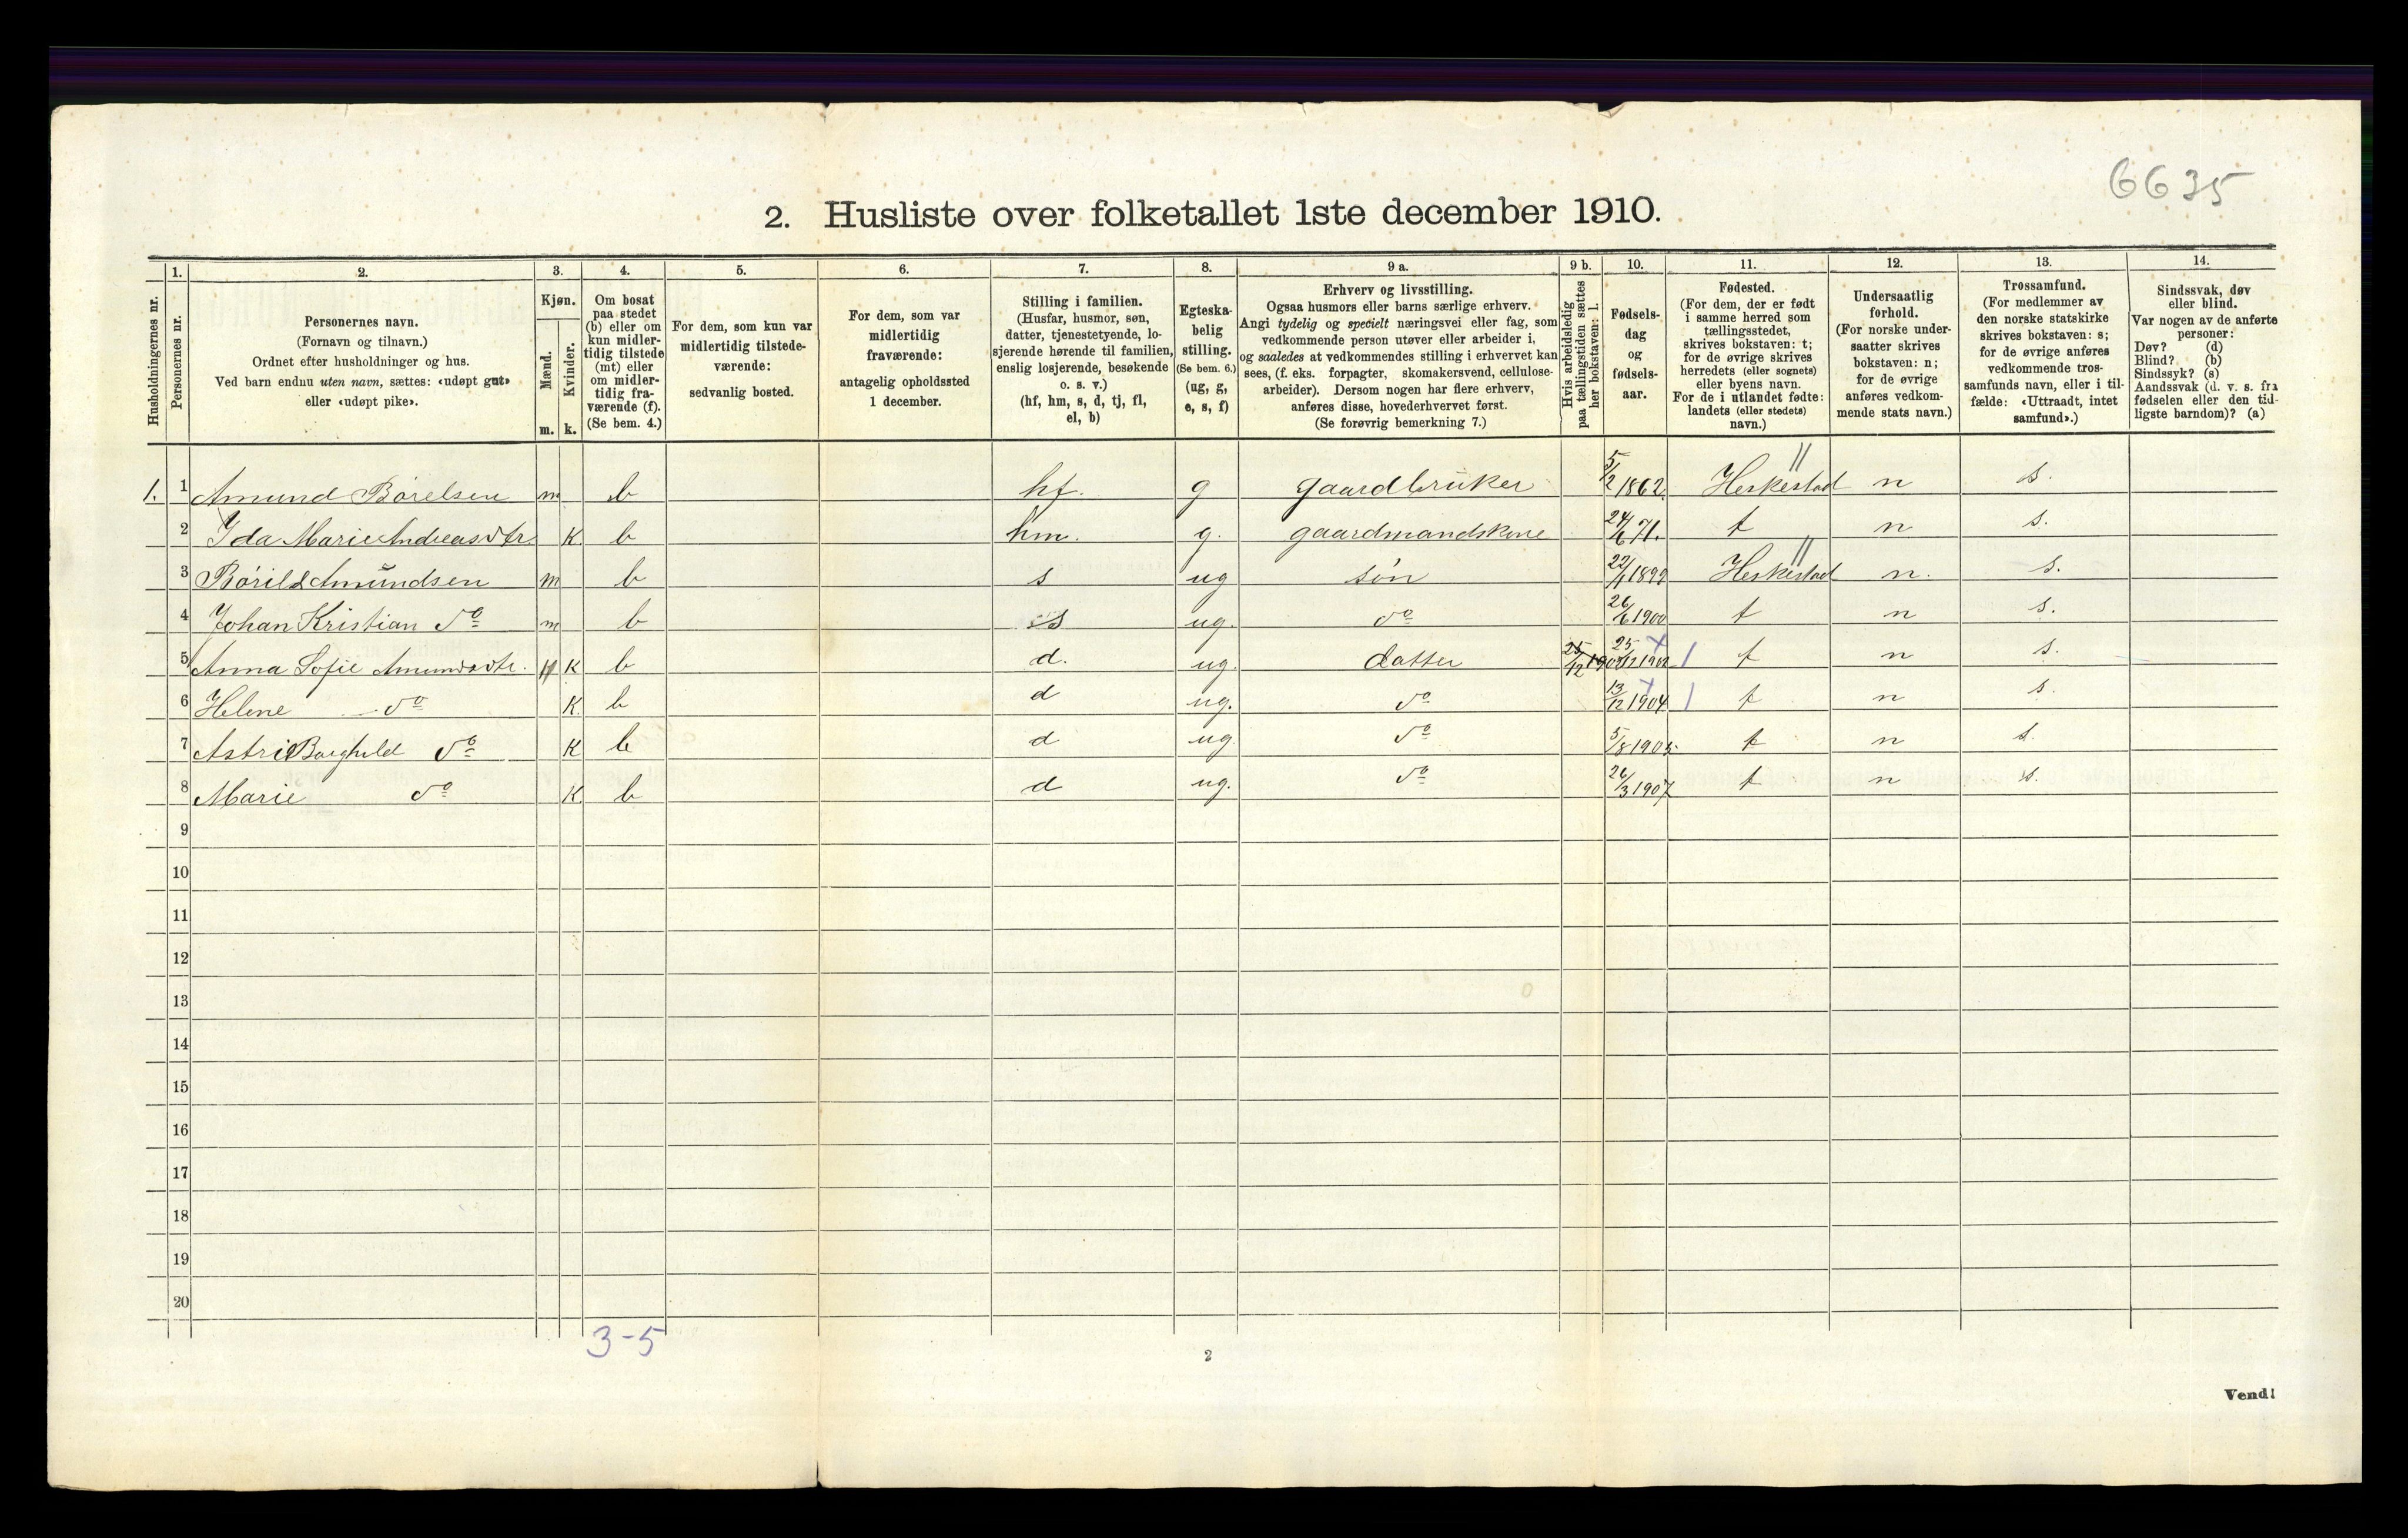 6635
2. Husliste over folketallet 1ste december 1910.
Husholdningernes nr.
1.
Personernes nr.
2.
Personernes navn.
(Fornavn og tilnavn.)
Ordnet efter husholdninger og hus.
Ved barn endnu uten navn, sættes: «udøpt gut»
eller «udøpt pike».
3.
Kjøn.
Mænd.
Kvinder.
m. k.
4.
Om bosat
paa stedet
(b) eller om
kun midler-
tidig tilstede
(mt) eller
om midler-
tidig fra-
værende (f).
(Se bem. 4.)
5.
For dem, som kun var
midlertidig tilstede-
værende:
sedvanlig bosted.
6.
For dem, som var
midlertidig
fraværende:
antagelig opholdssted
1 december.
7.
Stilling i familien.
(Husfar, husmor, søn,
datter, tjenestetyende, lo-
sjerende hørende til familien,
enslig losjerende, besøkende
o. s. v.)
(hf, hm, s, d, tj, fl,
el, b)
8.
Egteska-
belig
stilling.
(Se bem. 6.)
(ug, g,
e, s, f)
9 a.
Erhverv og livsstilling.
Ogsaa husmors eller barns særlige erhverv.
Angi tydelig og specielt næringsvei eller fag, som
vedkommende person utøver eller arbeider i,
og saaledes at vedkommendes stilling i erhvervet kan
sees, (f. eks. forpagter, skomakersvend, cellulose-
arbeider). Dersom nogen har flere erhverv,
anføres disse, hovederhvervet først.
(Se forøvrig bemerkning 7.)
9 b.
Hvis arbeidsledig
paa tællingstiden sættes
her bokstaven: l.
10.
Fødsels-
dag
og
fødsels-
aar.
11.
Fødested.
(For dem, der er født
i samme herred som
tællingsstedet,
skrives bokstaven: t;
for de øvrige skrives
herredets (eller sognets)
eller byens navn.
For de i utlandet fødte:
landets (eller stedets)
navn.)
12.
Undersaatlig
forhold.
(For norske under-
saatter skrives
bokstaven: n;
for de øvrige
anføres vedkom-
mende stats navn.)
13.
Trossamfund.
(For medlemmer av
den norske statskirke
skrives bokstaven: s;
for de øvrige anføres
vedkommende tros-
samfunds navn, eller i til-
fælde: «Uttraadt, intet
samfund».)
14.
Sindssvak, døv
eller blind.
Var nogen av de anførte
personer:
Døv? (d)
Blind? (b)
Sindssyk? (s)
Aandssvak (d. v. s. fra
fødselen eller den tid-
ligste barndom)? (a)
1. 1 Amund Børelsen m b hf. g gaardbruker 5/2 1862. Heskestad n s.
2 Ida Marie Andreasdtr. K. b hm. g. gaardmandskone 24/6 71. t n s.
3 Børild Amundsen m b s ug søn 22/1 1899 Heskestad n. s.
4 Johan Kristian do m b s ug. do 26/6 1900 t n s.
5 Anna Sofie Amundsdtr. K b d. ug. datter 25/12 1902 t n s.
6 Helene do K. b d ug. do 13/12 1904 t n s.
7 Astrid Borghild do K b d ug do 5/8 1905 t n s.
8 Marie do K b d ug. do 26/3 1907 t n s.
9
10
11
12
13
14
15
16
17
18
19
20
3-5
2
Vend!